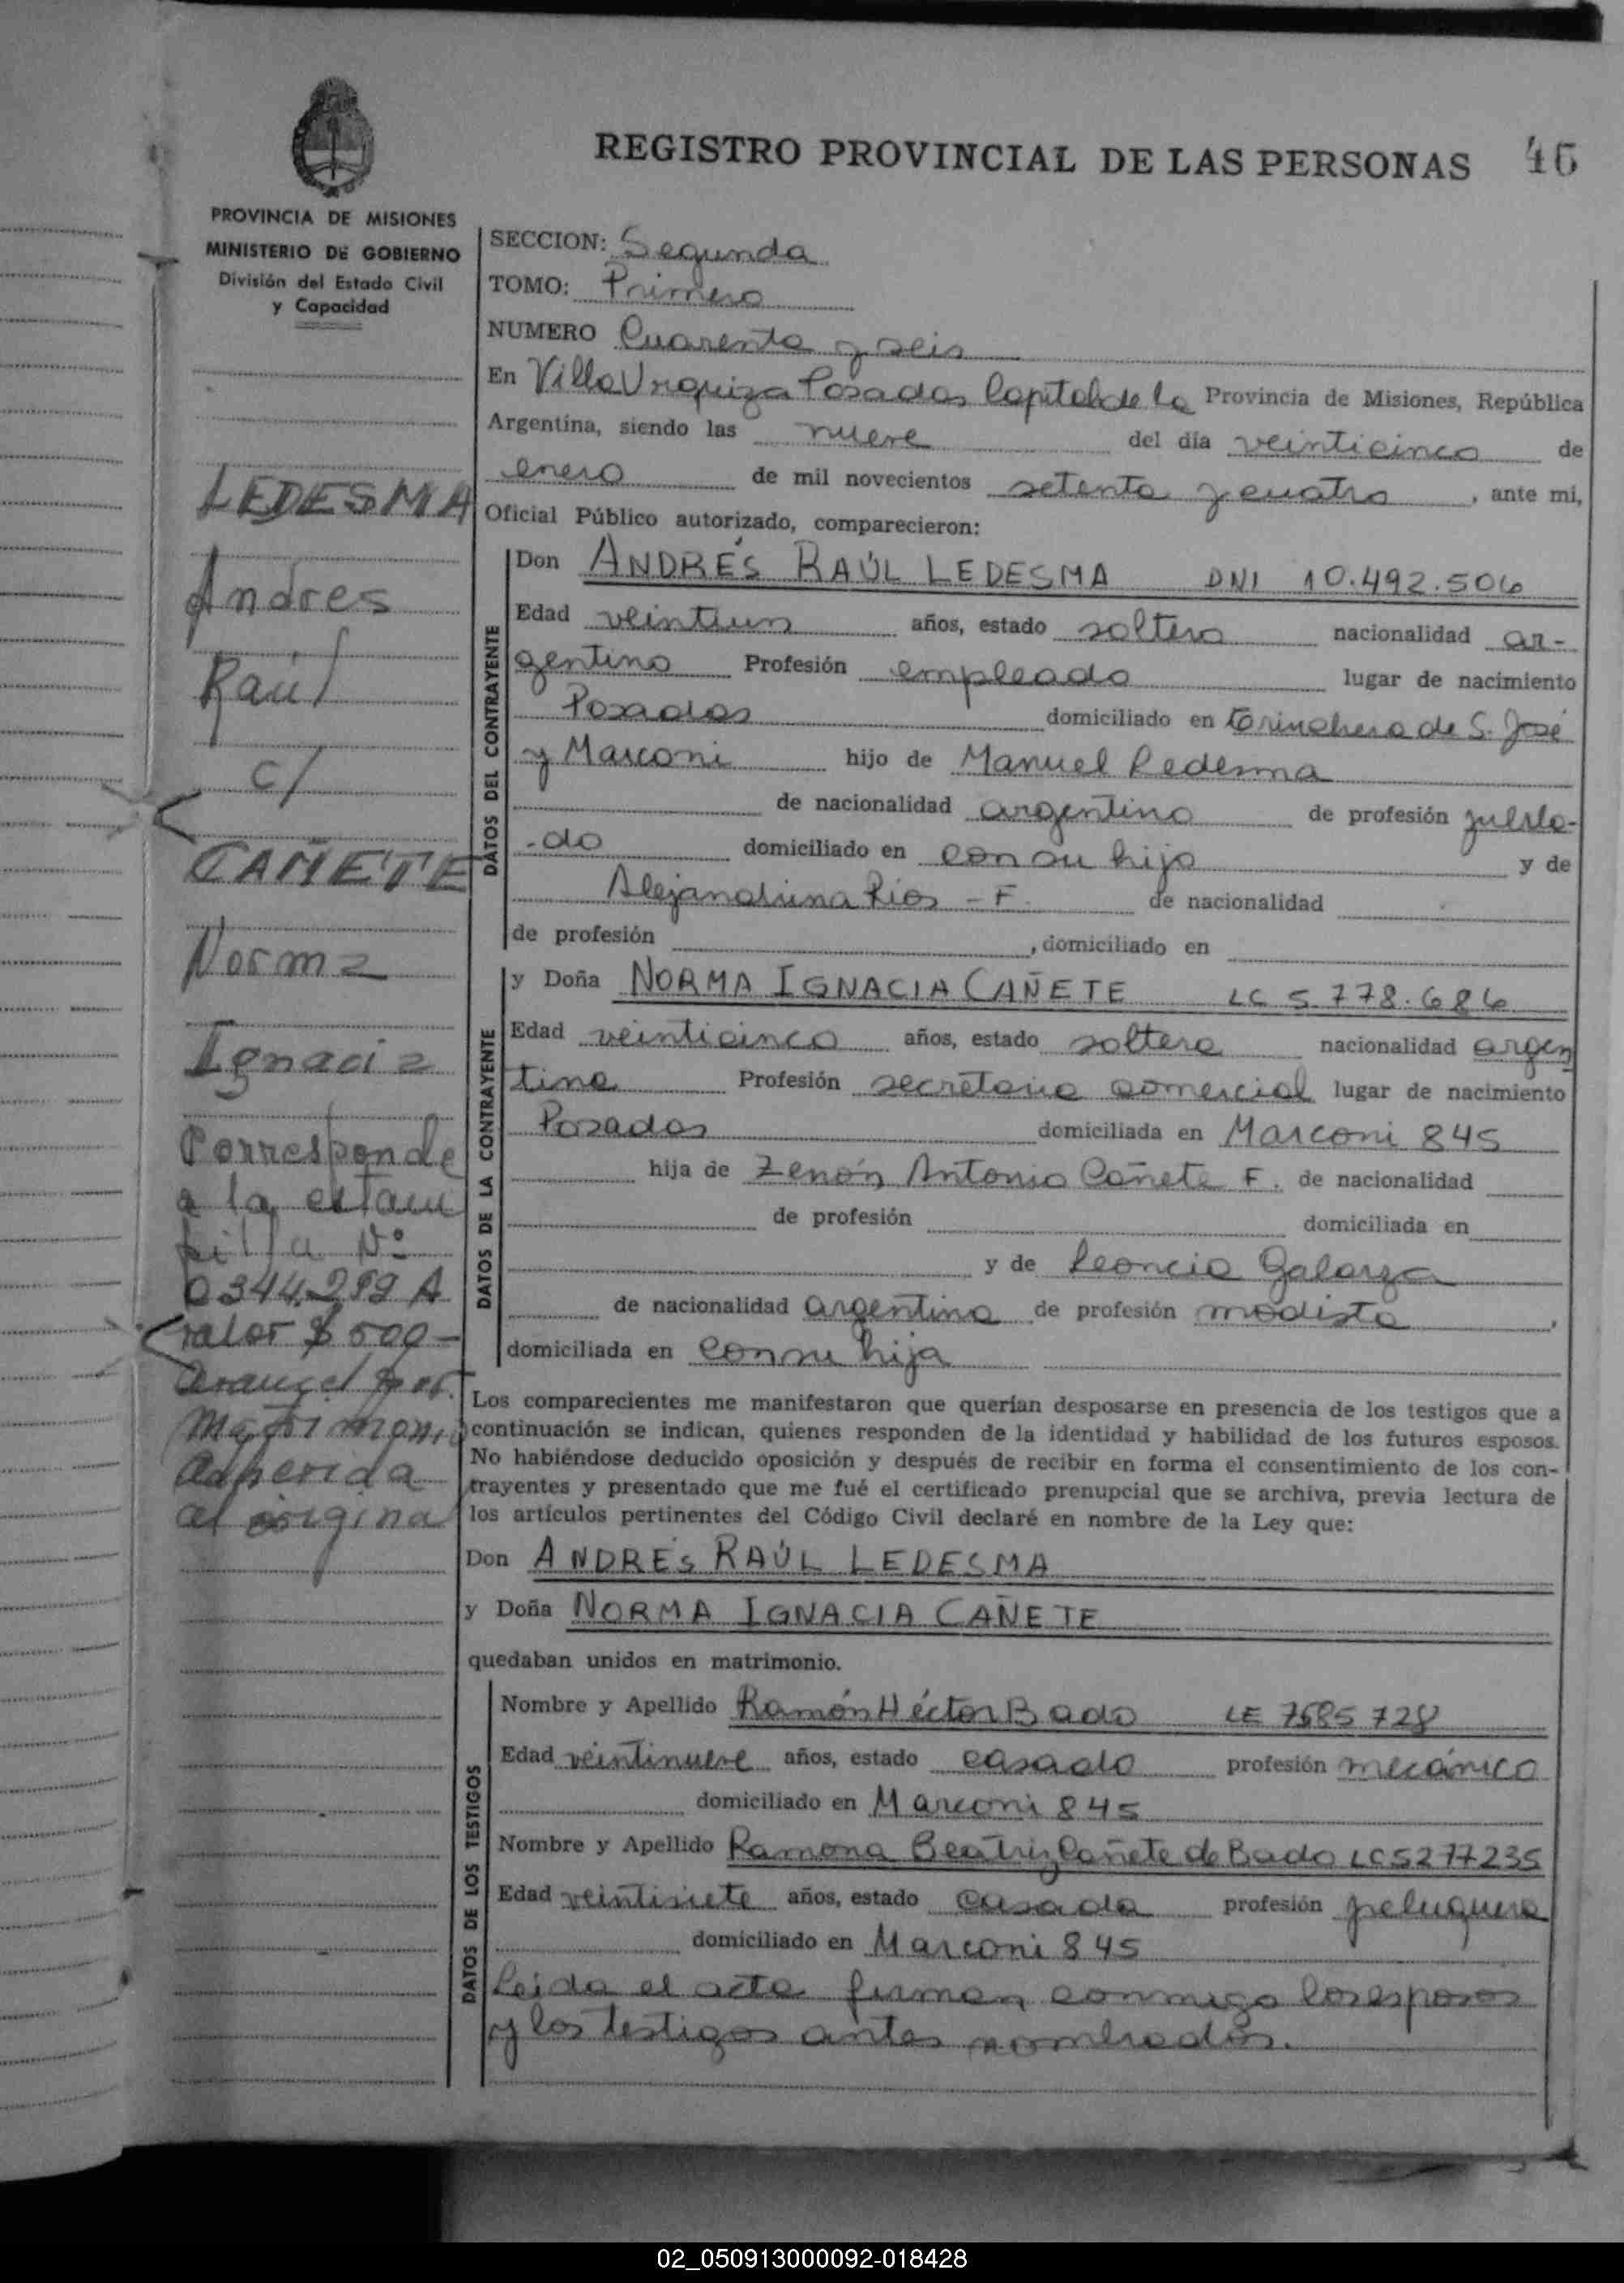 REGISTRO PROVINCIAL DE LAS PERSONAS 46
PROVINCIA DE MISIONES
MINISTERIO DE GOBIERNO
División del Estado Civil
y Capacidad
LEDESMA
Andres
Raúl
c/
CAÑETE
Norma
Ignacia
Corresponde
a la estam
pilla Nº
0344.299 A
valor $ 500-
Arancel por
Matrimonio
Adherida
al origina
SECCION: Segunda
TOMO: Primero
NUMERO Cuarenta y seis
En Villa Urquiza Posadas Capital de la Provincia de Misiones, República
Argentina, siendo las nueve del día veinticinco de
enero de mil novecientos setenta y cuatro, ante mi,
Oficial Público autorizado, comparecieron:
DATOS DEL CONTRAYENTE
Don ANDRÉS RAÚL LEDESMA DNI 10.492.506
Edad veintiun años, estado soltero nacionalidad ar-
gentino Profesión empleado lugar de nacimiento
Posadas domiciliado en Trinchera de S. José
y Marconi hijo de Manuel Ledesma
de nacionalidad argentino de profesión jubila-
-do domiciliado en con su hijo y de
Alejandrina Rios - F. de nacionalidad
de profesión , domiciliado en
DATOS DE LA CONTRAYENTE
y Doña NORMA IGNACIA CAÑETE LC 5.778.686
Edad veinticinco años, estado soltera nacionalidad argen
tina Profesión secretaria comercial lugar de nacimiento
Posadas domiciliada en Marconi 845
hija de Zenón Antonio Cañete F. de nacionalidad
de profesión domiciliada en
y de Leoncia Galarza
de nacionalidad argentina de profesión modista,
domiciliada en con su hija
Los comparecientes me manifestaron que querían desposarse en presencia de los testigos que a
continuación se indican, quienes responden de la identidad y habilidad de los futuros esposos.
No habiéndose deducido oposición y después de recibir en forma el consentimiento de los con-
trayentes y presentado que me fué el certificado prenupcial que se archiva, previa lectura de
los artículos pertinentes del Código Civil declaré en nombre de la Ley que:
Don ANDRÉS RAÚL LEDESMA
y Doña NORMA IGNACIA CAÑETE
quedaban unidos en matrimonio.
DATOS DE LOS TESTIGOS
Nombre y Apellido Ramón Héctor Bado LE 7585728
Edad veintinueve años, estado casado profesión mecánico
domiciliado en Marconi 845
Nombre y Apellido Ramona Beatriz Cañete de Bado LC 5277235
Edad veintisiete años, estado casada profesión peluquera
domiciliado en Marconi 845
Leida el acta firman conmigo los esposos
y los testigos antes nombrados.
02_050913000092-018428